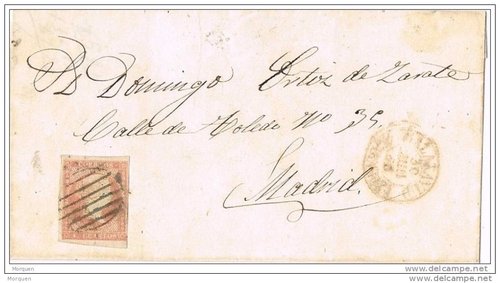 Dn Domingo Ortiz de Zarate
Calle de Toledo No 39.
Madrid.
Morquen
Morquen
delcampe.net